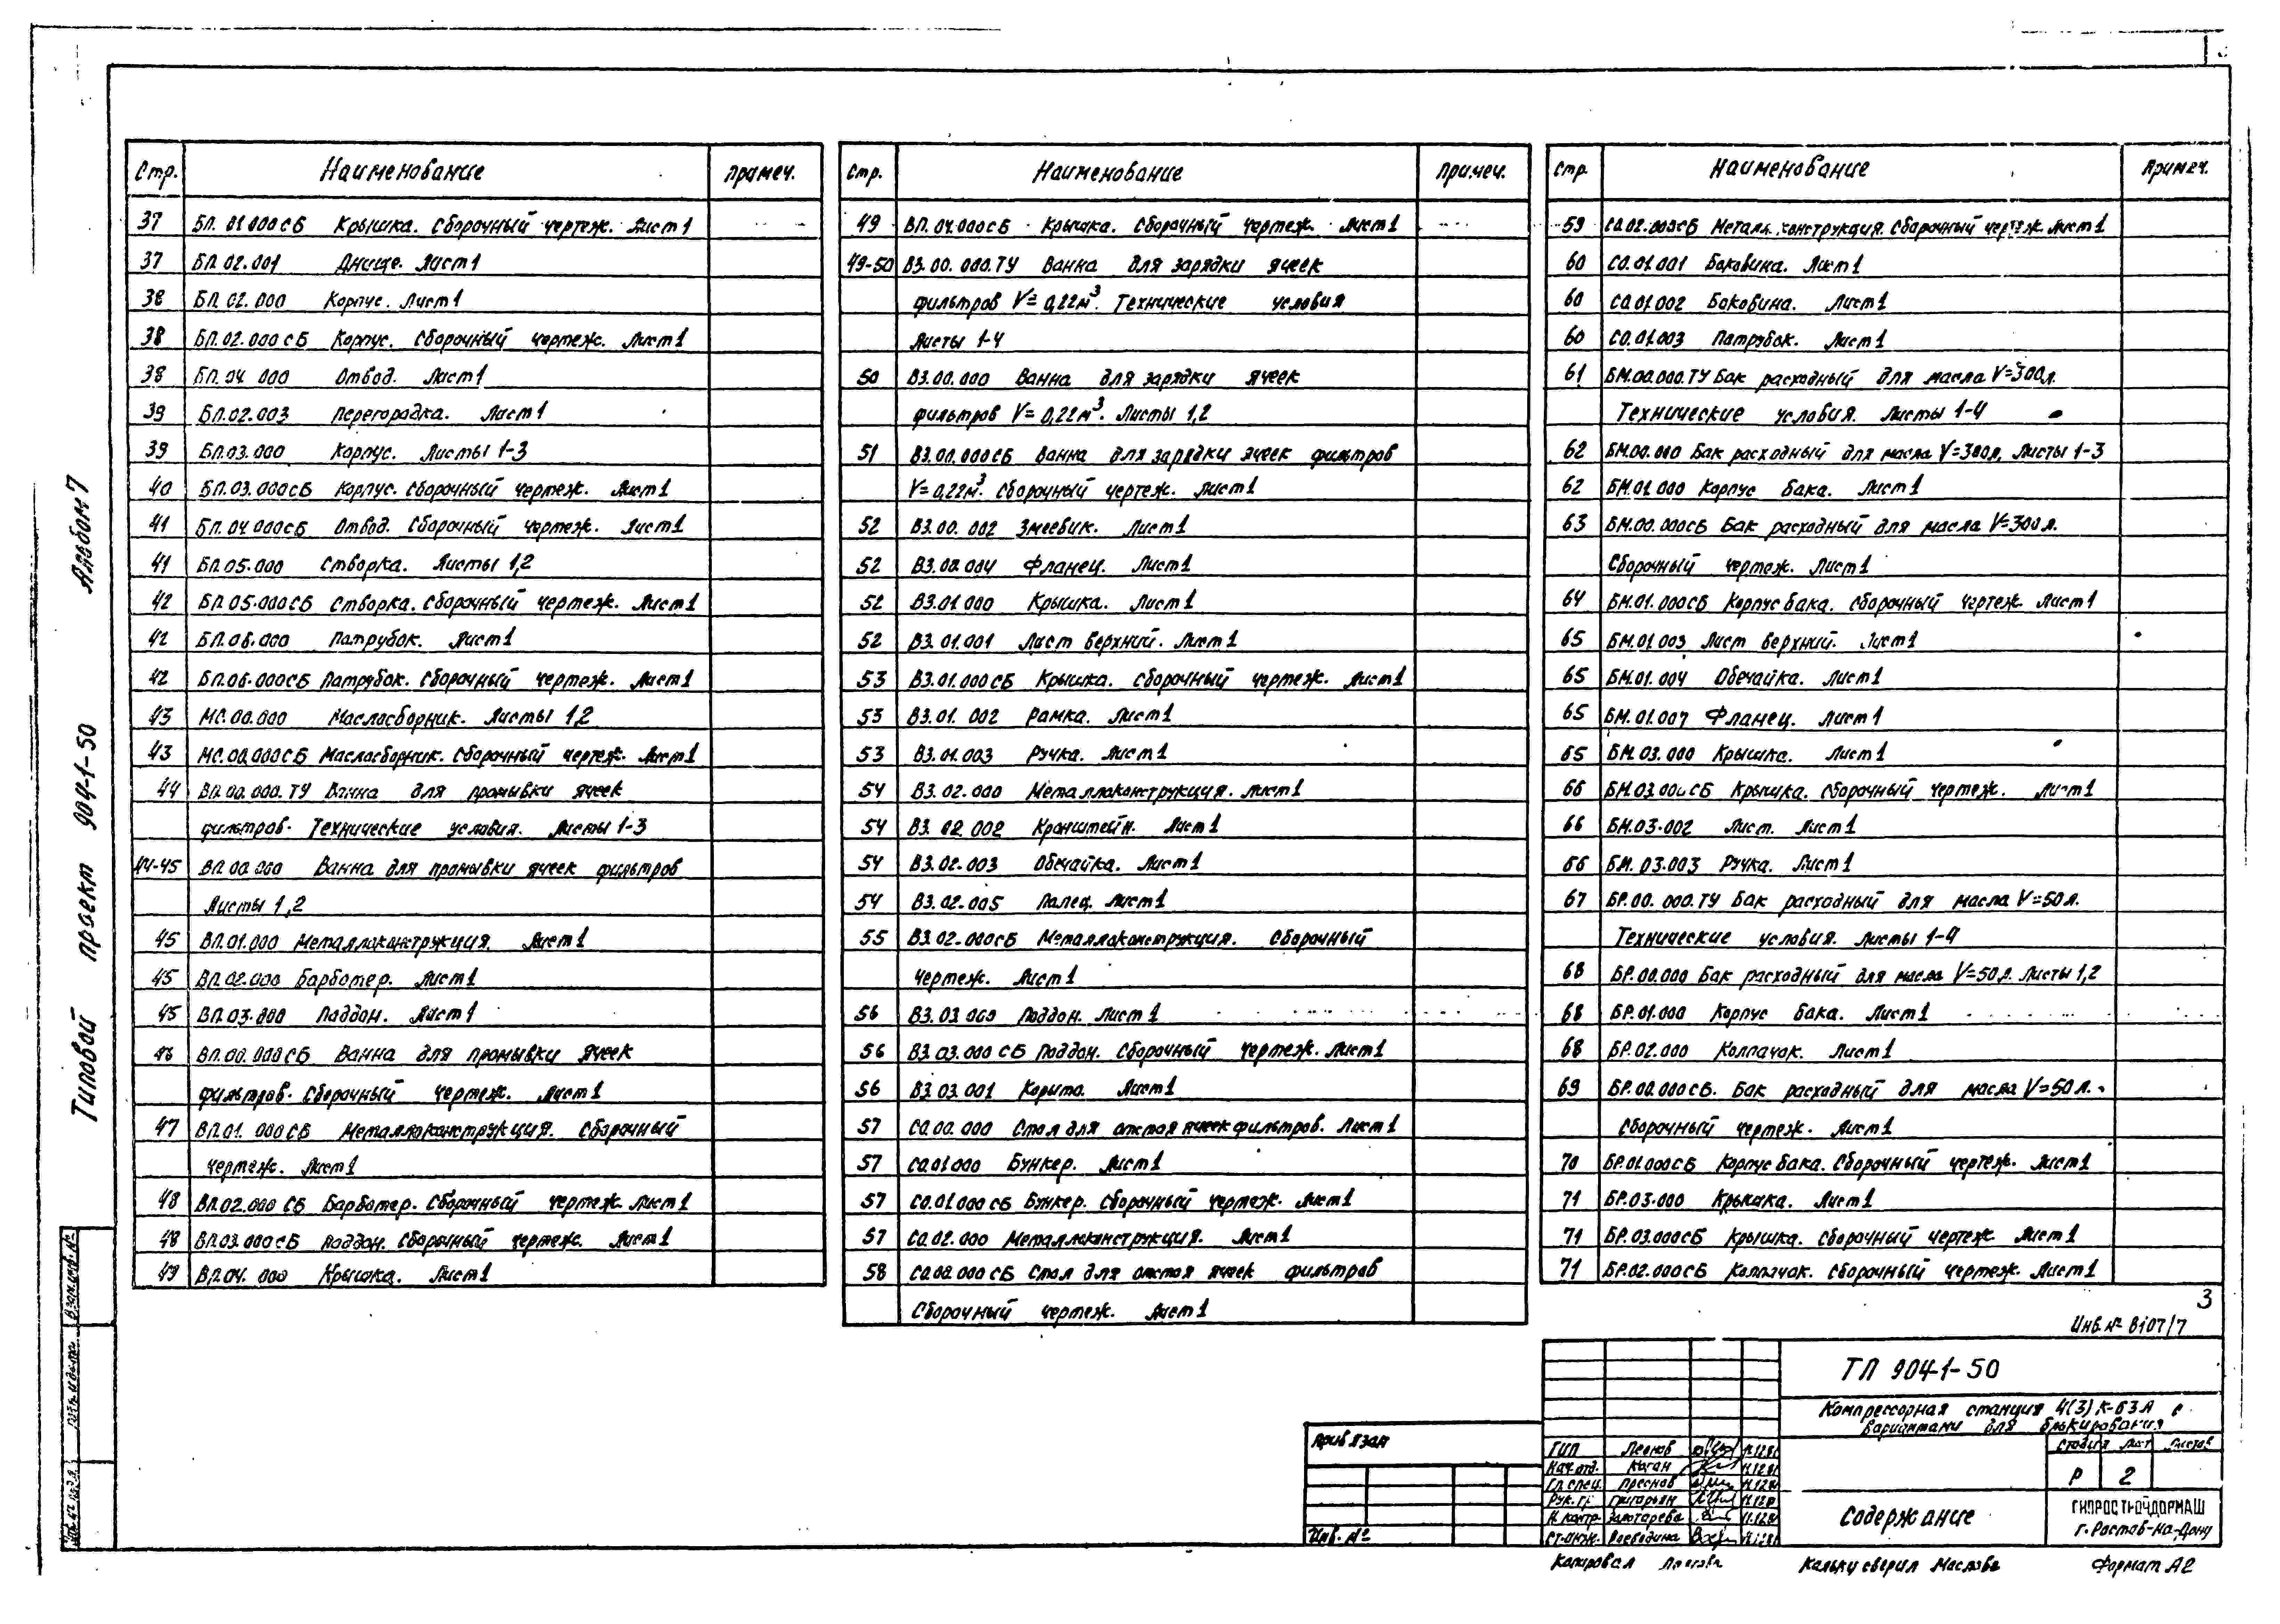 Стр. Наименование Примеч.
37 БП.01.000СБ Крышка. Сборочный чертеж. Лист 1
37 БП.02.001 Днище. Лист 1
38 БП.02.000 Корпус. Лист 1
38 БП.02.000СБ Корпус. Сборочный чертеж. Лист 1
38 БП.04.000 Отвод. Лист 1
39 БП.02.003 Перегородка. Лист 1
39 БП.03.000 Корпус. Листы 1-3
40 БП.03.000СБ Корпус. Сборочный чертеж. Лист 1
41 БП.04.000СБ Отвод. Сборочный чертеж. Лист 1
41 БП.05.000 Створка. Листы 1,2
42 БП.05.000СБ Створка. Сборочный чертеж. Лист 1
42 БП.06.000 Патрубок. Лист 1
42 БП.06.000СБ Патрубок. Сборочный чертеж. Лист 1
43 МС.00.000 Маслосборник. Листы 1,2
43 МС.00.000СБ Маслосборник. Сборочный чертеж. Лист 1
44 ВП.00.000.ТУ Ванна для промывки ячеек
фильтров. Технические условия. Листы 1-3
44-45 ВП.00.000 Ванна для промывки ячеек фильтров
Листы 1,2
45 ВП.01.000 Металлоконструкция. Лист 1
45 ВП.02.000 Барботер. Лист 1
45 ВП.03.000 Поддон. Лист 1
46 ВП.00.000СБ Ванна для промывки ячеек
фильтров. Сборочный чертеж. Лист 1
47 ВП.01.000СБ Металлоконструкция. Сборочный
чертеж. Лист 1
48 ВП.02.000 СБ Барботер. Сборочный чертеж. Лист 1
48 ВП.03.000СБ Поддон. Сборочный чертеж. Лист 1
49 ВП.04.000 Крышка. Лист 1
Стр. Наименование Примеч.
49 ВП.04.000СБ Крышка. Сборочный чертеж. Лист 1
49-50 ВЗ.00.000.ТУ Ванна для зарядки ячеек
фильтров V=0,22м³. Технические условия
Листы 1-4
50 ВЗ.00.000 Ванна для зарядки ячеек
фильтров V=0,22м³. Листы 1,2
51 ВЗ.00.000СБ Ванна для зарядки ячеек фильтров
V=0,22м³. Сборочный чертеж. Лист 1
52 ВЗ.00.002 Змеевик. Лист 1
52 ВЗ.00.004 Фланец. Лист 1
52 ВЗ.01.000 Крышка. Лист 1
52 ВЗ.01.001 Лист верхний. Лист 1
53 ВЗ.01.000СБ Крышка. Сборочный чертеж. Лист 1
53 ВЗ.01.002 Рамка. Лист 1
53 ВЗ.01.003 Ручка. Лист 1
54 ВЗ.02.000 Металлоконструкция. Лист 1
54 ВЗ.02.002 Кронштейн. Лист 1
54 ВЗ.02.003 Обечайка. Лист 1
54 ВЗ.02.005 Палец. Лист 1
55 ВЗ.02.000СБ Металлоконструкция. Сборочный
чертеж. Лист 1
56 ВЗ.03.000 Поддон. Лист 1
56 ВЗ.03.000 СБ Поддон. Сборочный чертеж. Лист 1
56 ВЗ.03.001 Корыто. Лист 1
57 СО.00.000 Стол для отстоя ячеек фильтров. Лист 1
57 СО.01.000 Бункер. Лист 1
57 СО.01.000 СБ Бункер. Сборочный чертеж. Лист 1
57 СО.02.000 Металлоконструкция. Лист 1
58 СО.00.000 СБ Стол для отстоя ячеек фильтров
Сборочный чертеж. Лист 1
Стр. Наименование Примеч.
59 СО.02.000СБ Металлоконструкция. Сборочный чертеж Лист 1
60 СО.01.001 Боковина. Лист 1
60 СО.01.002 Боковина. Лист 1
60 СО.01.003 Патрубок. Лист 1
61 БМ.00.000.ТУ Бак расходный для масла V=300л.
Технические условия. Листы 1-4
62 БМ.00.000 Бак расходный для масла V=300л. Листы 1-3
62 БМ.01.000 Корпус бака. Лист 1
63 БМ.00.000СБ Бак расходный для масла V=300 л.
Сборочный чертеж. Лист 1
64 БМ.01.000СБ Корпус бака. Сборочный чертеж. Лист 1
65 БМ.01.003 Лист верхний. Лист 1
65 БМ.01.004 Обечайка. Лист 1
65 БМ.01.007 Фланец. Лист 1
65 БМ.03.000 Крышка. Лист 1
66 БМ.03.000СБ Крышка. Сборочный чертеж. Лист 1
66 БМ.03.002 Лист. Лист 1
66 БМ.03.003 Ручка. Лист 1
67 БР.00.000.ТУ Бак расходный для масла V=50л.
Технические условия. Листы 1-4
68 БР.00.000 Бак расходный для масла V=50л. Листы 1,2
68 БР.01.000 Корпус бака. Лист 1
68 БР.02.000 Колпачок. Лист 1
69 БР.00.000СБ. Бак расходный для масла V=50л.
Сборочный чертеж. Лист 1
70 БР.01.000СБ Корпус бака. Сборочный чертеж. Лист 1
71 БР.03.000 Крышка. Лист 1
71 БР.03.000СБ Крышка. Сборочный чертеж Лист 1
71 БР.02.000СБ Колпачок. Сборочный чертеж. Лист 1
Типовой проект 904-1-50 Альбом 7
Взам.инв.№
Подпись и дата
Инв.№ подл.
3
Инв.№ 8107/7
ТП 904-1-50
Компрессорная станция 4(3)К-63А с
вариантами для блокирования
Привязан
Инв. №
ГИП Леонов
Нач.отд. Коган
Гл.спец. Преснов
Рук.гр. Григорьян
Н.контр. Золотарева
Ст.инж. Воеводина
Стадия Лист Листов
Р 2
Содержание
ГИПРОСТРОЙДОРМАШ
г. Ростов-на-Дону
Копировал
Кальку сверил Маслова
Формат А2